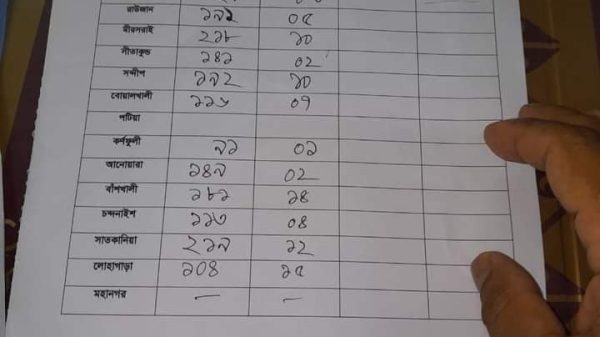 রাউজান ১৯২ ০৫
মীরসরাই ২১৮ ১০
সীতাকুন্ড ১৪১ ০২
সন্দ্বীপ ১৯২ ১০
বোয়ালখালী ০৭
পটিয়া
কর্ণফুলী ৯১ ০১
আনোয়ারা ১৪৯ ০২
বাঁশখালী ১৮১ ১৪
চন্দনাইশ ১১৩ ০৪
সাতকানিয়া ২১৯ ১২
লোহাগাড়া ১০৪ ১৫
মহানগর — —